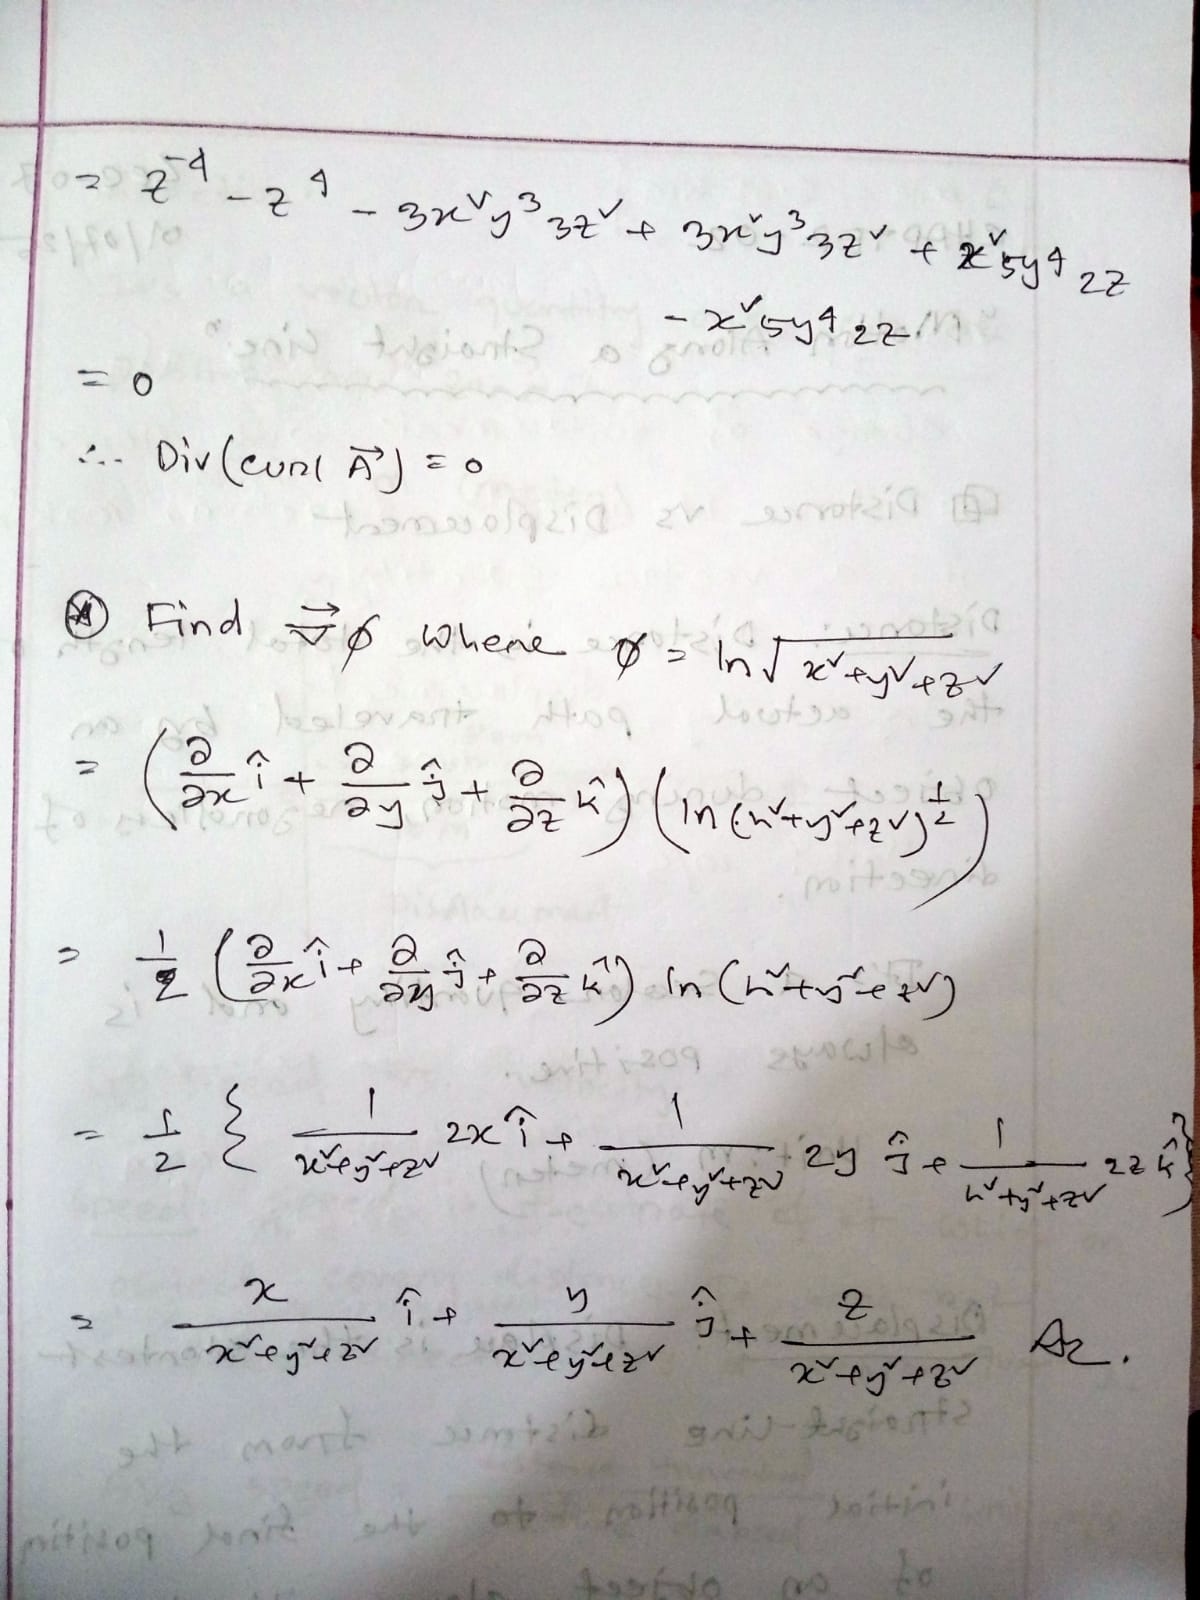 = z⁻⁴ - z⁴ - 3x²y³3z² + 3x²y³3z² + x²5y⁴2z
- x²5y⁴2z
= 0
∴ Div(curl A⃗) = 0
Find ∇⃗φ where φ = ln√(x²+y²+z²)
= (∂/∂x î + ∂/∂y ĵ + ∂/∂z k̂) (ln (x²+y²+z²)^½)
= 1/2 (∂/∂x î + ∂/∂y ĵ + ∂/∂z k̂) ln (x²+y²+z²)
= 1/2 { 1/(x²+y²+z²) 2x î + 1/(x²+y²+z²) 2y ĵ + 1/(x²+y²+z²) 2z k̂ }
= x/(x²+y²+z²) î + y/(x²+y²+z²) ĵ + z/(x²+y²+z²)